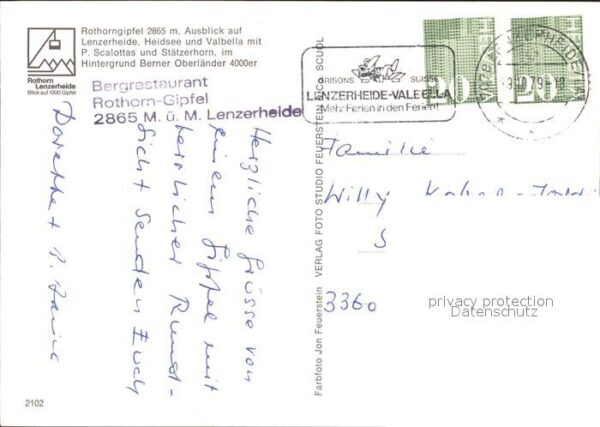 Rothorngipfel 2865 m. Ausblick auf
Lenzerheide, Heidsee und Valbella mit
P. Scalottas und Stätzerhorn, im
Hintergrund Berner Oberländer 4000er
Rothorn
Lenzerheide
Blick auf 1000 Gipfel
Bergrestaurant
Rothorn-Gipfel
2865 M. ü. M. Lenzerheide
Herzliche Grüsse von
einem Gipfel mit
herrlicher Rund-
sicht senden Euch
Dorothea
2102
Farbfoto Jon Feuerstein VERLAG FOTO STUDIO FEUERSTEIN SCUOL
GRISONS SUISSE
LENZERHEIDE-VALBELLA
Mehr Ferien in den Ferien!
7078 LENZERHEIDE/LAI
HELVETIA
20
HELVETIA
20
Familie
Willy
3360
privacy protection
Datenschutz